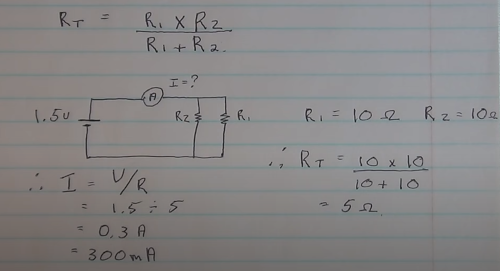 RT = R1 x R2 / R1 + R2.
I = ?
A
1.5v
R2
R1
R1 = 10 Ω R2 = 10Ω
∴ RT = 10 x 10 / 10 + 10
= 5 Ω.
∴ I = V/R
= 1.5 ÷ 5
= 0.3 A
= 300mA